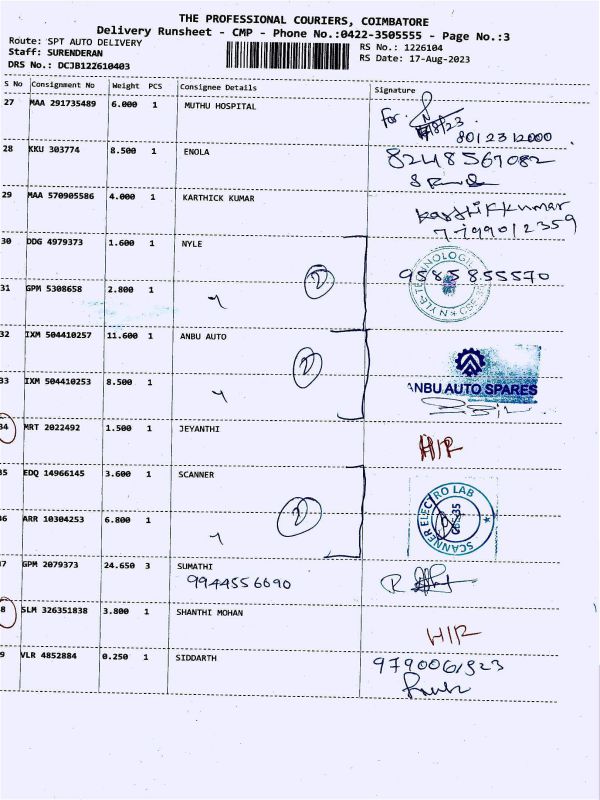 THE PROFESSIONAL COURIERS, COIMBATORE
Delivery Runsheet - CMP - Phone No.:0422-3505555 - Page No.:3
Route: SPT AUTO DELIVERY
RS No.: 1226104
Staff: SURENDERAN
RS Date: 17-Aug-2023
DRS No.: DCJB122610403
S No Consignment No Weight PCS Consignee Details Signature
27 MAA 291735489 6.000 1 MUTHU HOSPITAL
for
8012312000
28 KKU 303774 8.500 1 ENOLA
8248567082
29 MAA 570905586 4.000 1 KARTHICK KUMAR
karthikkumar
7799012359
30 DDG 4979373 1.600 1 NYLE
2
9585855570
31 GPM 5308658 2.800 1
32 IXM 504410257 11.600 1 ANBU AUTO
2
ANBU AUTO SPARES
33 IXM 504410253 8.500 1
34 MRT 2022492 1.500 1 JEYANTHI
H/R
35 EDQ 14966145 3.600 1 SCANNER
2
SCANNER ELECTRO LAB
36 ARR 10304253 6.800 1
37 GPM 2079373 24.650 3 SUMATHI
9944556690
38 SLM 326351838 3.800 1 SHANTHI MOHAN
H/R
39 VLR 4852884 0.250 1 SIDDARTH
9790061923